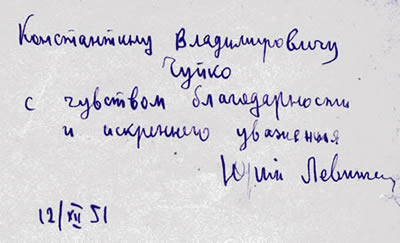 Константину Владимировичу
Чуйко
с чувством благодарности
и искреннего уважения
Юрий
12/XII 51